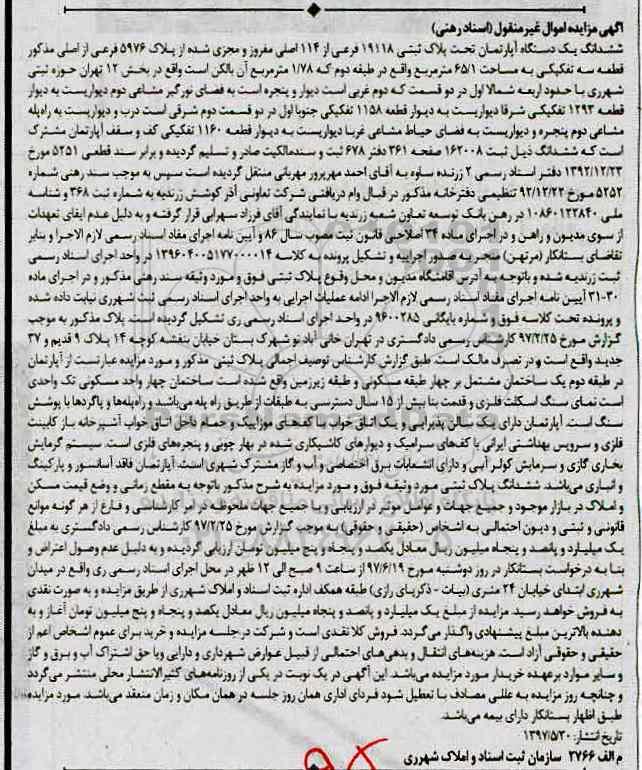 آگهی مزایده اموال غیر منقول (اسناد رهنی)
ششدانگ یک دستگاه آپارتمان تحت پلاک ثبتی ۱۹۱۱۸ فرعی از ۱۱۴ اصلی مفروز و مجزی شده از پلاک ۵۹۷۶ فرعی از اصلی مذکور
قطعه سه تفکیکی به مساحت ۶۵/۱ مترمربع واقع در طبقه دوم که ۱/۷۸ مترمربع آن بالکن است واقع در بخش ۱۲ تهران حوزه ثبتی
شهرری با حدود اربعه شمالا اول در دو قسمت که دوم غربی است دیوار و پنجره است به فضای نورگیر مشاعی دوم دیواریست به دیوار
قطعه ۱۲۹۳ تفکیکی شرقا دیواریست به دیوار قطعه ۱۱۵۸ تفکیکی جنوبا اول در دو قسمت دوم شرقی است درب و دیواریست به راه‌پله
مشاعی دوم پنجره و دیواریست به فضای حیاط مشاعی غربا دیواریست به دیوار قطعه ۱۱۶۰ تفکیکی کف و سقف آپارتمان مشترک
است که ششدانگ ذیل ثبت ۱۶۲۰۰۸ صفحه ۳۶۱ دفتر ۶۷۸ ثبت و سندمالکیت صادر و تسلیم گردیده و برابر سند قطعی ۵۲۵۱ مورخ
۱۳۹۲/۱۲/۲۳ دفتر اسناد رسمی ۲ زرنده ساوه به آقای احمد مهرپرور مهربانی منتقل گردیده است سپس به موجب سند رهنی شماره
۵۲۵۲ مورخ ۹۲/۱۲/۲۳ تنظیمی دفترخانه مذکور در قبال وام دریافتی شرکت تعاونی آذر کوشش زرندیه به شماره ثبت ۳۶۸ و شناسه
ملی ۱۰۸۶۰۱۲۲۸۴۰ در رهن بانک توسعه تعاون شعبه زرندیه با نمایندگی آقای فرزاد سهرابی قرار گرفته و به دلیل عدم ایفای تعهدات
از سوی مدیون و راهن و در اجرای ماده ۳۴ اصلاحی قانون ثبت مصوب سال ۸۶ و آیین نامه اجرای مفاد اسناد رسمی لازم الاجرا و بنابر
تقاضای بستانکار (مرتهن) منجر به صدور اجراییه و تشکیل پرونده به کلاسه ۱۳۹۶۰۴۰۰۵۱۷۷۰۰۰۰۱۴ در واحد اجرای اسناد رسمی
ثبت زرندیه شده و باتوجه به آدرس اقامتگاه مدیون و محل وقوع پلاک ثبتی فوق و مورد وثیقه سند رهنی مذکور و در اجرای ماده
۳۱-۳۰ آیین نامه اجرای مفاد اسناد رسمی لازم الاجرا ادامه عملیات اجرایی به واحد اجرای اسناد رسمی ثبت شهرری نیابت داده شده
و پرونده تحت کلاسه فوق و شماره بایگانی ۹۶۰۰۲۸۵ در واحد اجرای اسناد رسمی ری تشکیل گردیده است. پلاک مذکور به موجب
گزارش مورخ ۹۷/۲/۲۵ کارشناس رسمی دادگستری در تهران خانی آباد نو شهرک بستان خیابان بنفشه کوچه ۱۴ پلاک ۹ قدیم و ۳۷
جدید واقع است و در تصرف مالک است. طبق گزارش کارشناس توصیف اجمالی پلاک ثبتی مذکور و مورد مزایده عبارتست از آپارتمان
در طبقه دوم یک ساختمان مشتمل بر چهار طبقه مسکونی و طبقه زیرزمین واقع شده است ساختمان چهار واحد مسکونی تک واحدی
است نمای سنگ اسکلت فلزی و قدمت بنا بیش از ۱۵ سال دسترسی به طبقات از طریق راه پله می‌باشد و راه‌پله‌ها و پاگردها با پوشش
سنگ است. آپارتمان دارای یک سالن پذیرایی و یک اتاق خواب با کف‌های موزاییک و حمام داخل اتاق خواب آشپزخانه باز کابینت
فلزی و سرویس بهداشتی ایرانی با کف‌های سرامیک و دیوارهای کاشیکاری شده در بهار چوبی و پنجره‌های فلزی است. سیستم گرمایش
بخاری گازی و سرمایش کولر آبی و دارای انشعابات برق اختصاصی و آب و گاز مشترک شهری است. آپارتمان فاقد آسانسور و پارکینگ
و انباری می‌باشد. ششدانگ پلاک ثبتی مورد وثیقه فوق و مورد مزایده به شرح مذکور باتوجه به مقطع زمانی و وضع قیمت مسکن
و املاک در بازار موجود و جمیع جهات و عوامل موثر در ارزیابی و با جمیع جهات ملحوظه در امر کارشناسی و فارغ از هر گونه موانع
قانونی و ثبتی و دیون احتمالی به اشخاص (حقیقی و حقوقی) به موجب گزارش مورخ ۹۷/۲/۲۵ کارشناس رسمی دادگستری به مبلغ
یک میلیارد و پانصد و پنجاه میلیون ریال معادل یکصد و پنجاه و پنج میلیون تومان ارزیابی گردیده و به دلیل عدم وصول اعتراض و
بنا به درخواست بستانکار در روز دوشنبه مورخ ۹۷/۶/۱۹ از ساعت ۹ صبح الی ۱۲ ظهر در محل اجرای اسناد رسمی ری واقع در میدان
شهرری ابتدای خیابان ۲۴ متری (بیات - ذکریای رازی) طبقه همکف اداره ثبت اسناد و املاک شهرری از طریق مزایده و به صورت نقدی
به فروش خواهد رسید. مزایده از مبلغ یک میلیارد و پانصد و پنجاه میلیون ریال معادل یکصد و پنجاه و پنج میلیون تومان آغاز و به
دهنده بالاترین مبلغ پیشنهادی واگذار می‌گردد. فروش کلا نقدی است و شرکت در جلسه مزایده و خرید برای عموم اشخاص اعم از
حقیقی و حقوقی آزاد است. هزینه‌های انتقال و بدهی‌های احتمالی از قبیل عوارض شهرداری و دارایی ویا حق اشتراک آب و برق و گاز
و سایر موارد برعهده خریدار مورد مزایده می‌باشد. این آگهی در یک نوبت در یکی از روزنامه‌های کثیرالانتشار محلی منتشر می‌گردد
و چنانچه روز مزایده به عللی مصادف با تعطیل شود فردای اداری همان روز جلسه در همان مکان و زمان منعقد می‌باشد. مورد مزایده
طبق اظهار بستانکار دارای بیمه می‌باشد.
تاریخ انتشار: ۱۳۹۷/۵/۲۰
م الف ۲۷۶۶ سازمان ثبت اسناد و املاک شهرری